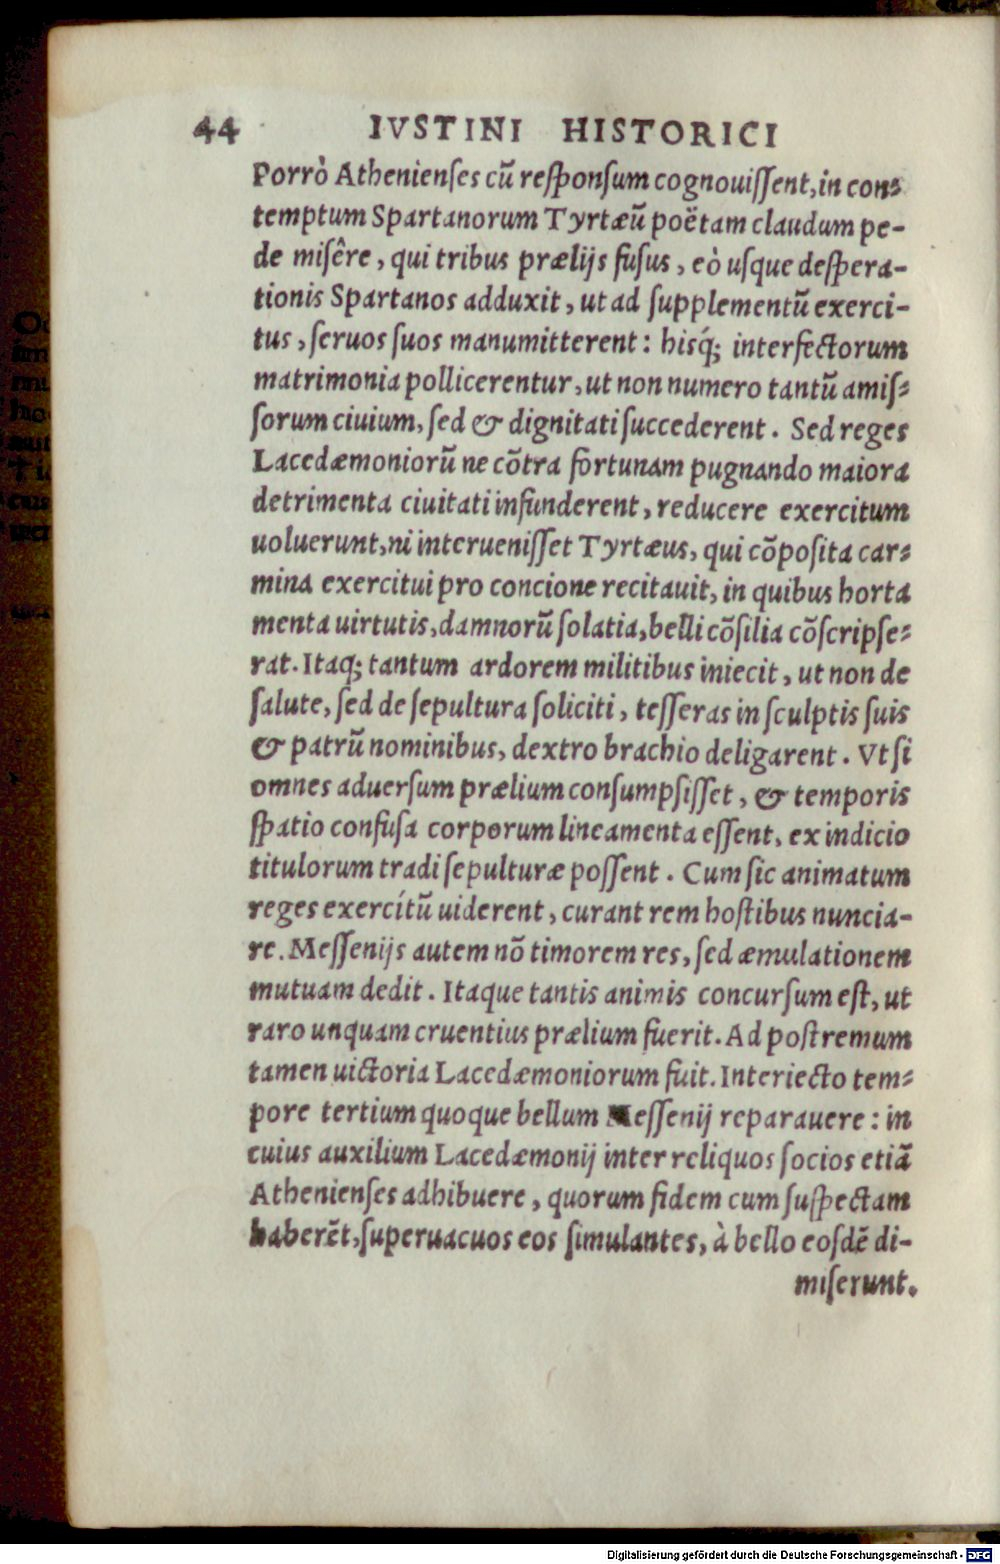 44 IVSTINI HISTORICI
Porrò Athenienſes cũ reſponſum cognouiſſent, in con-
temptum Spartanorum Tyrtæũ poëtam claudum pe-
de misêre, qui tribus prælijs fuſus, eò uſque deſpera-
tionis Spartanos adduxit, ut ad ſupplementũ exerci-
tus, ſeruos ſuos manumitterent: hisq́; interfectorum
matrimonia pollicerentur, ut non numero tantũ amiſ-
ſorum ciuium, ſed & dignitati ſuccederent. Sed reges
Lacedæmoniorũ ne cõtra fortunam pugnando maiora
detrimenta ciuitati infunderent, reducere exercitum
uoluerunt, ni interueniſſet Tyrtæus, qui cõpoſita car-
mina exercitui pro concione recitauit, in quibus horta
menta uirtutis, damnorũ ſolatia, belli cõſilia cõſcripſe-
rat. Itaq; tantum ardorem militibus iniecit, ut non de
ſalute, ſed de ſepultura ſoliciti, teſſeras in ſculptis ſuis
& patrũ nominibus, dextro brachio deligarent. Vt ſi
omnes aduerſum prælium conſumpſiſſet, & temporis
ſpatio confuſa corporum lineamenta eſſent, ex indicio
titulorum tradi ſepulturæ poſſent. Cum ſic animatum
reges exercítũ uiderent, curant rem hoſtibus nuncia-
re. Meſſenijs autem nõ timorem res, ſed æmulationem
mutuam dedit. Itaque tantis animis concurſum eſt, ut
raro unquam cruentius prælium fuerit. Ad poſtremum
tamen uictoria Lacedæmoniorum fuit. Interiecto tem-
pore tertium quoque bellum Meſſenij reparauere: in
cuius auxilium Lacedæmonij inter reliquos ſocios etiã
Athenienſes adhibuere, quorum fidem cum ſuſpectam
haberẽt, ſuperuacuos eos ſimulantes, à bello eoſdẽ di-
miſerunt.
Digitalisierung gefördert durch die Deutsche Forschungsgemeinschaft - DFG